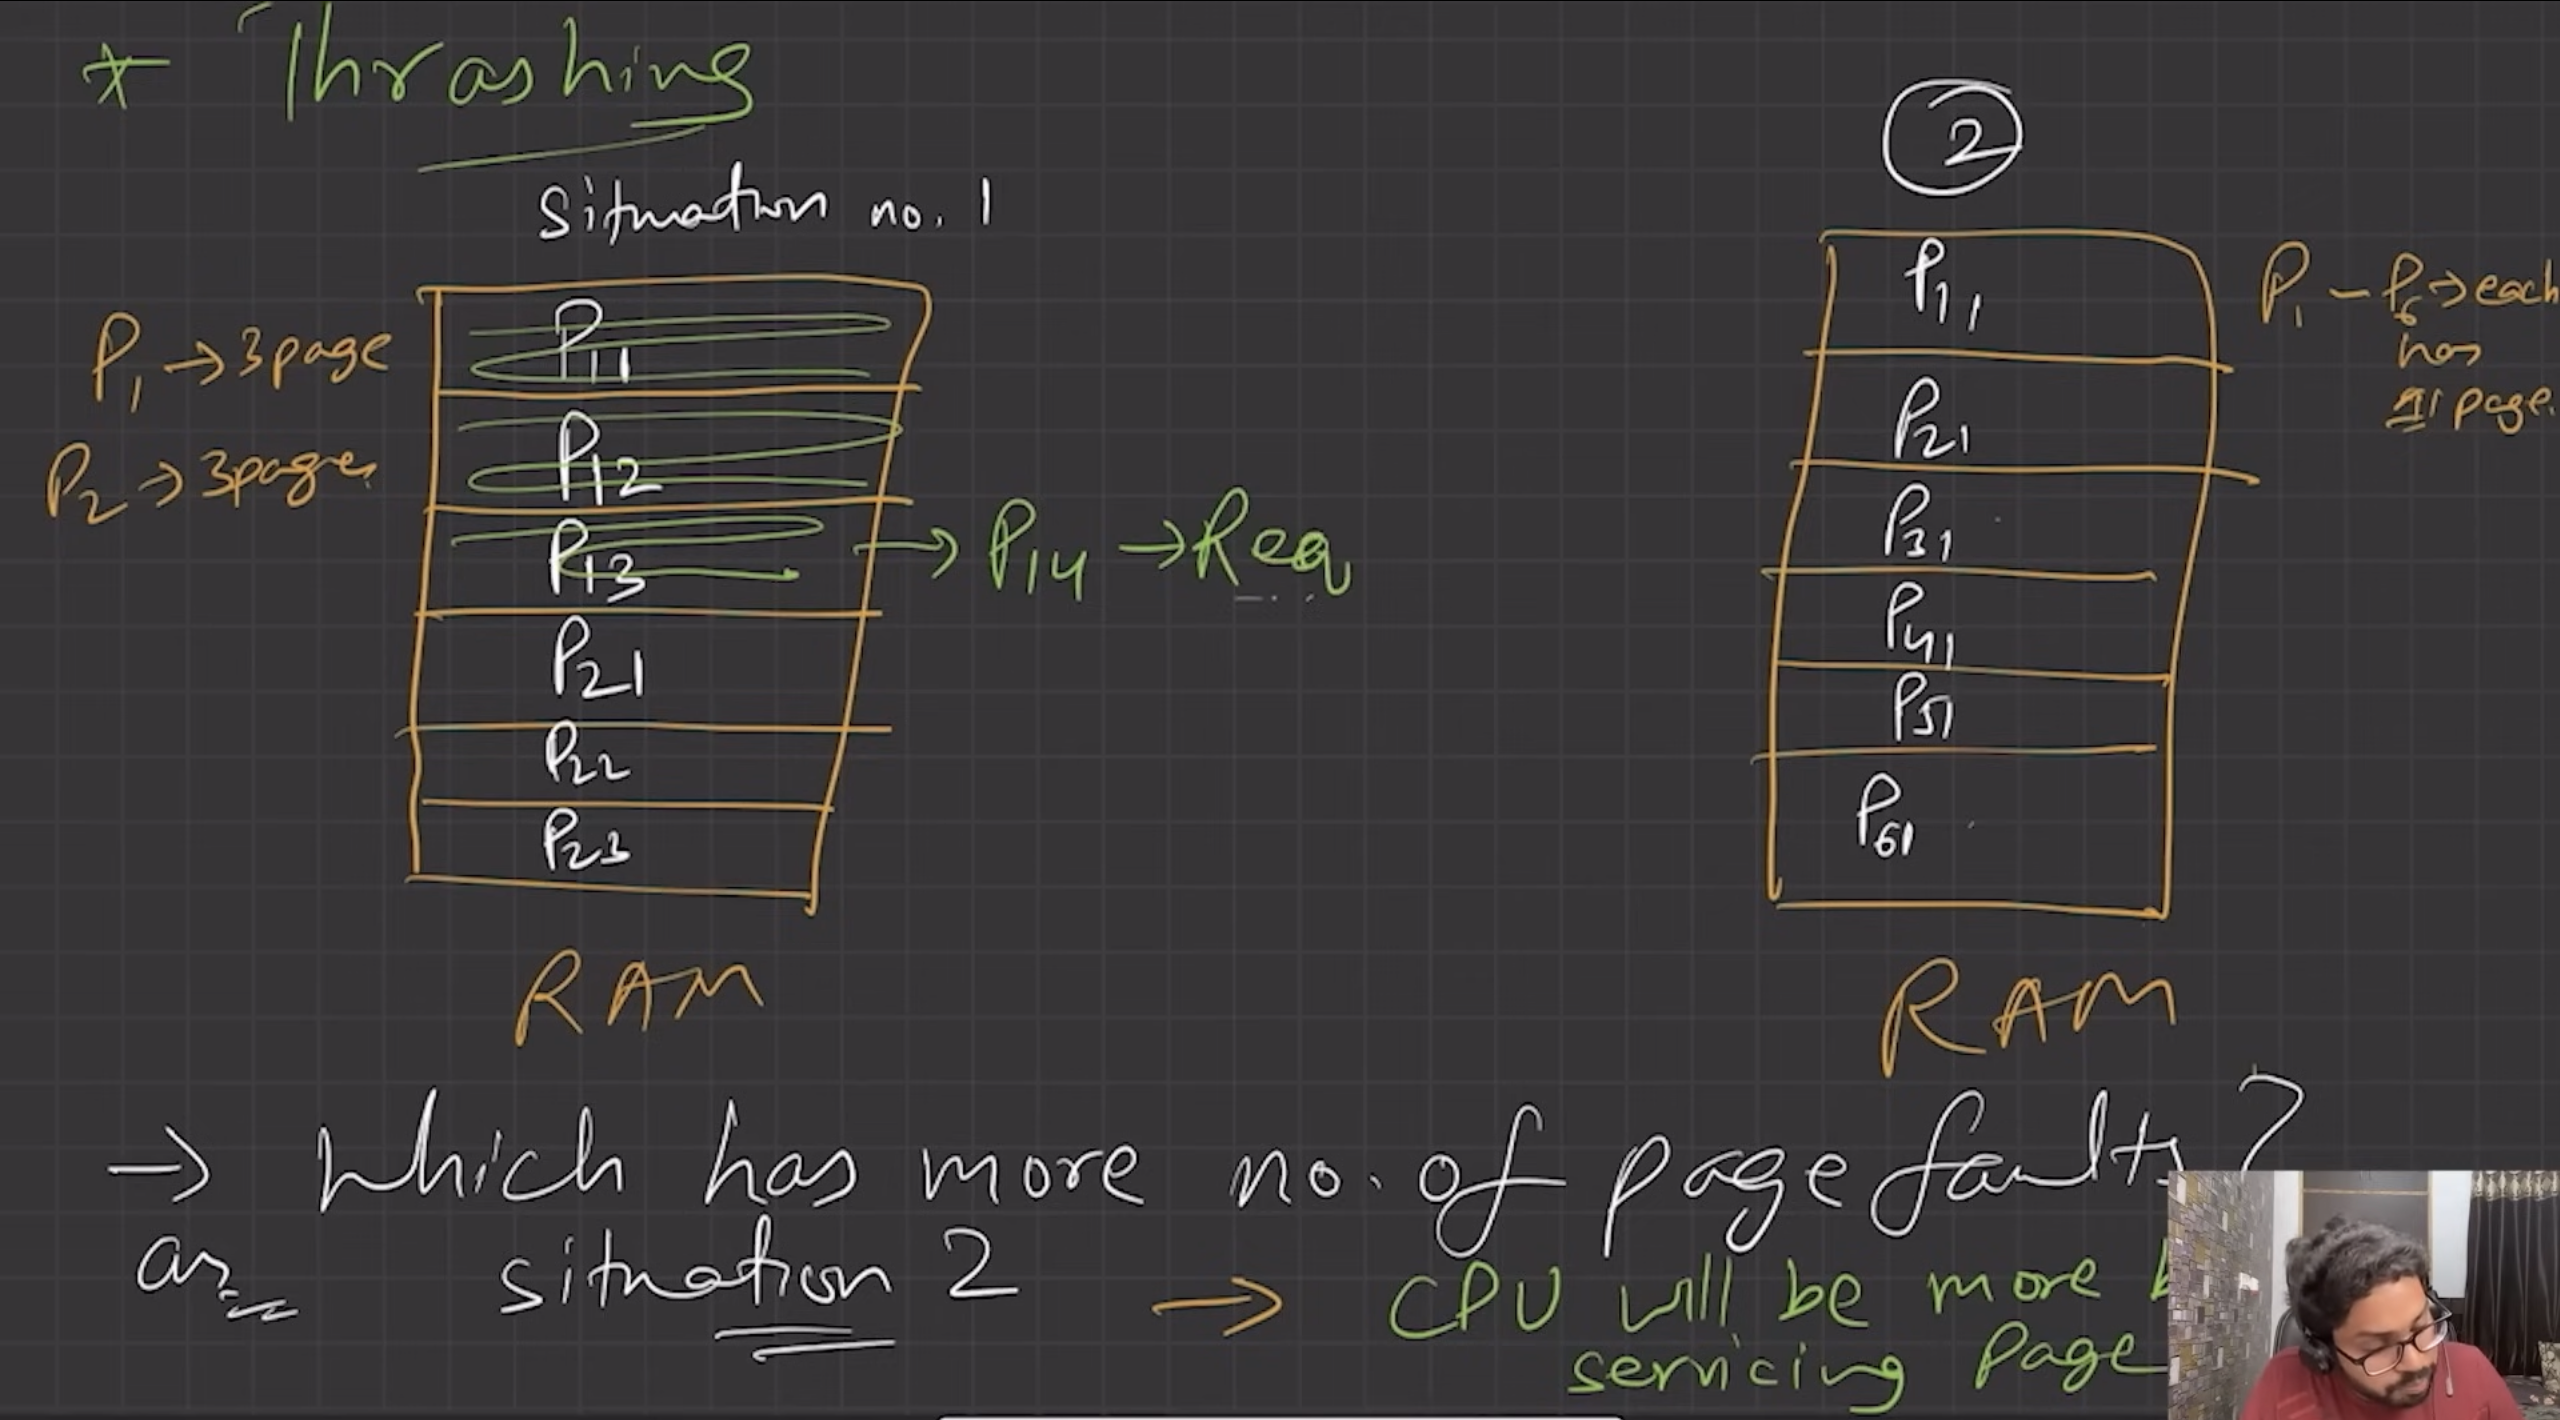 * Thrashing
Situation no. 1
P1 → 3 page
P2 → 3 pages
P11
P12
P13 → P14 → Req
P21
P22
P23
RAM
2
P11
P21
P31
P41
P51
P61
P1 – P6 → each
has
1 page.
RAM
→ Which has more no. of page faults?
situation 2 → CPU will be more
servicing Page